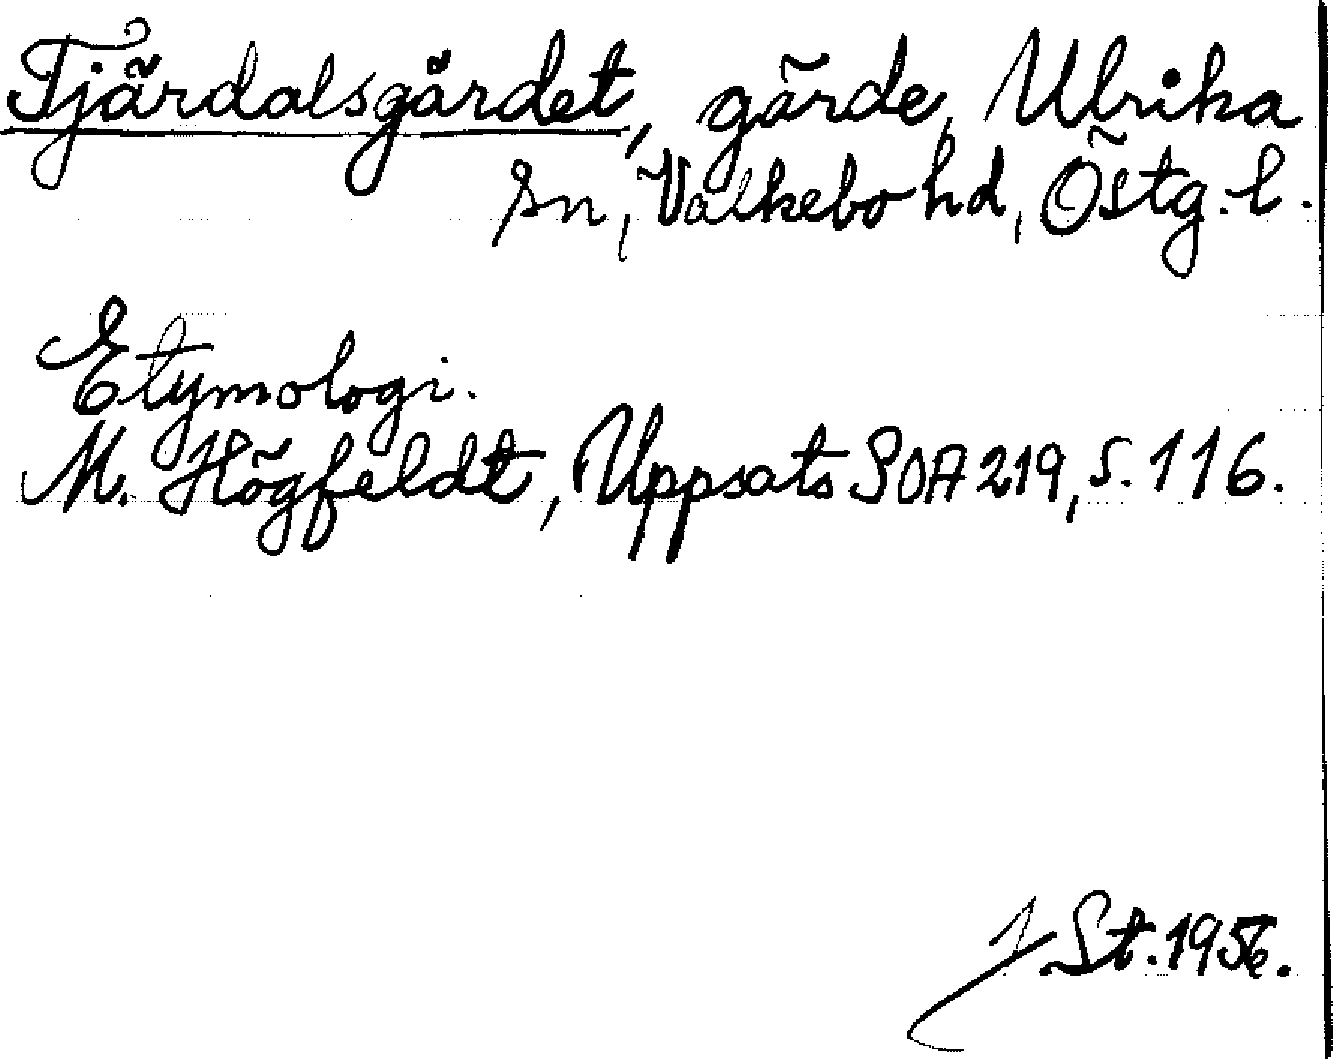 Tjärdalsgärdet, gärde, Ulrika
sn, Valkebo hd, Östg. l.
Etymologi.
M. Högfeldt, Uppsats SOA 219, s. 116.
J. St. 1956.